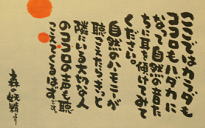 ここではカラダも
ココロもハダカに
なって自然の音に
ちに耳を傾けてみて
ください。
自然のハーモニーが
聴こえたらきっと
隣にいる大切な人
のココロの音も聴
こえてくるはず
森の妖精より